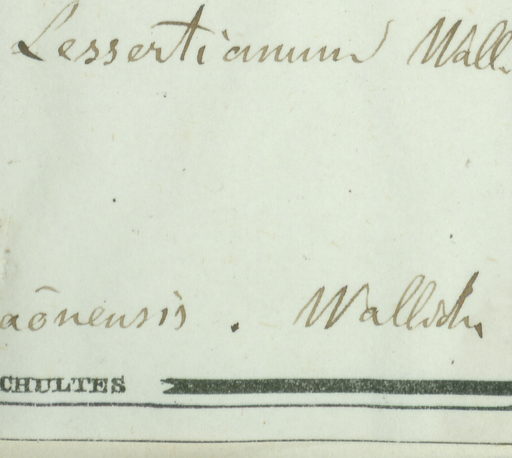 Lessertianum Wall.
aōnensis . Wallich.
CHULTES